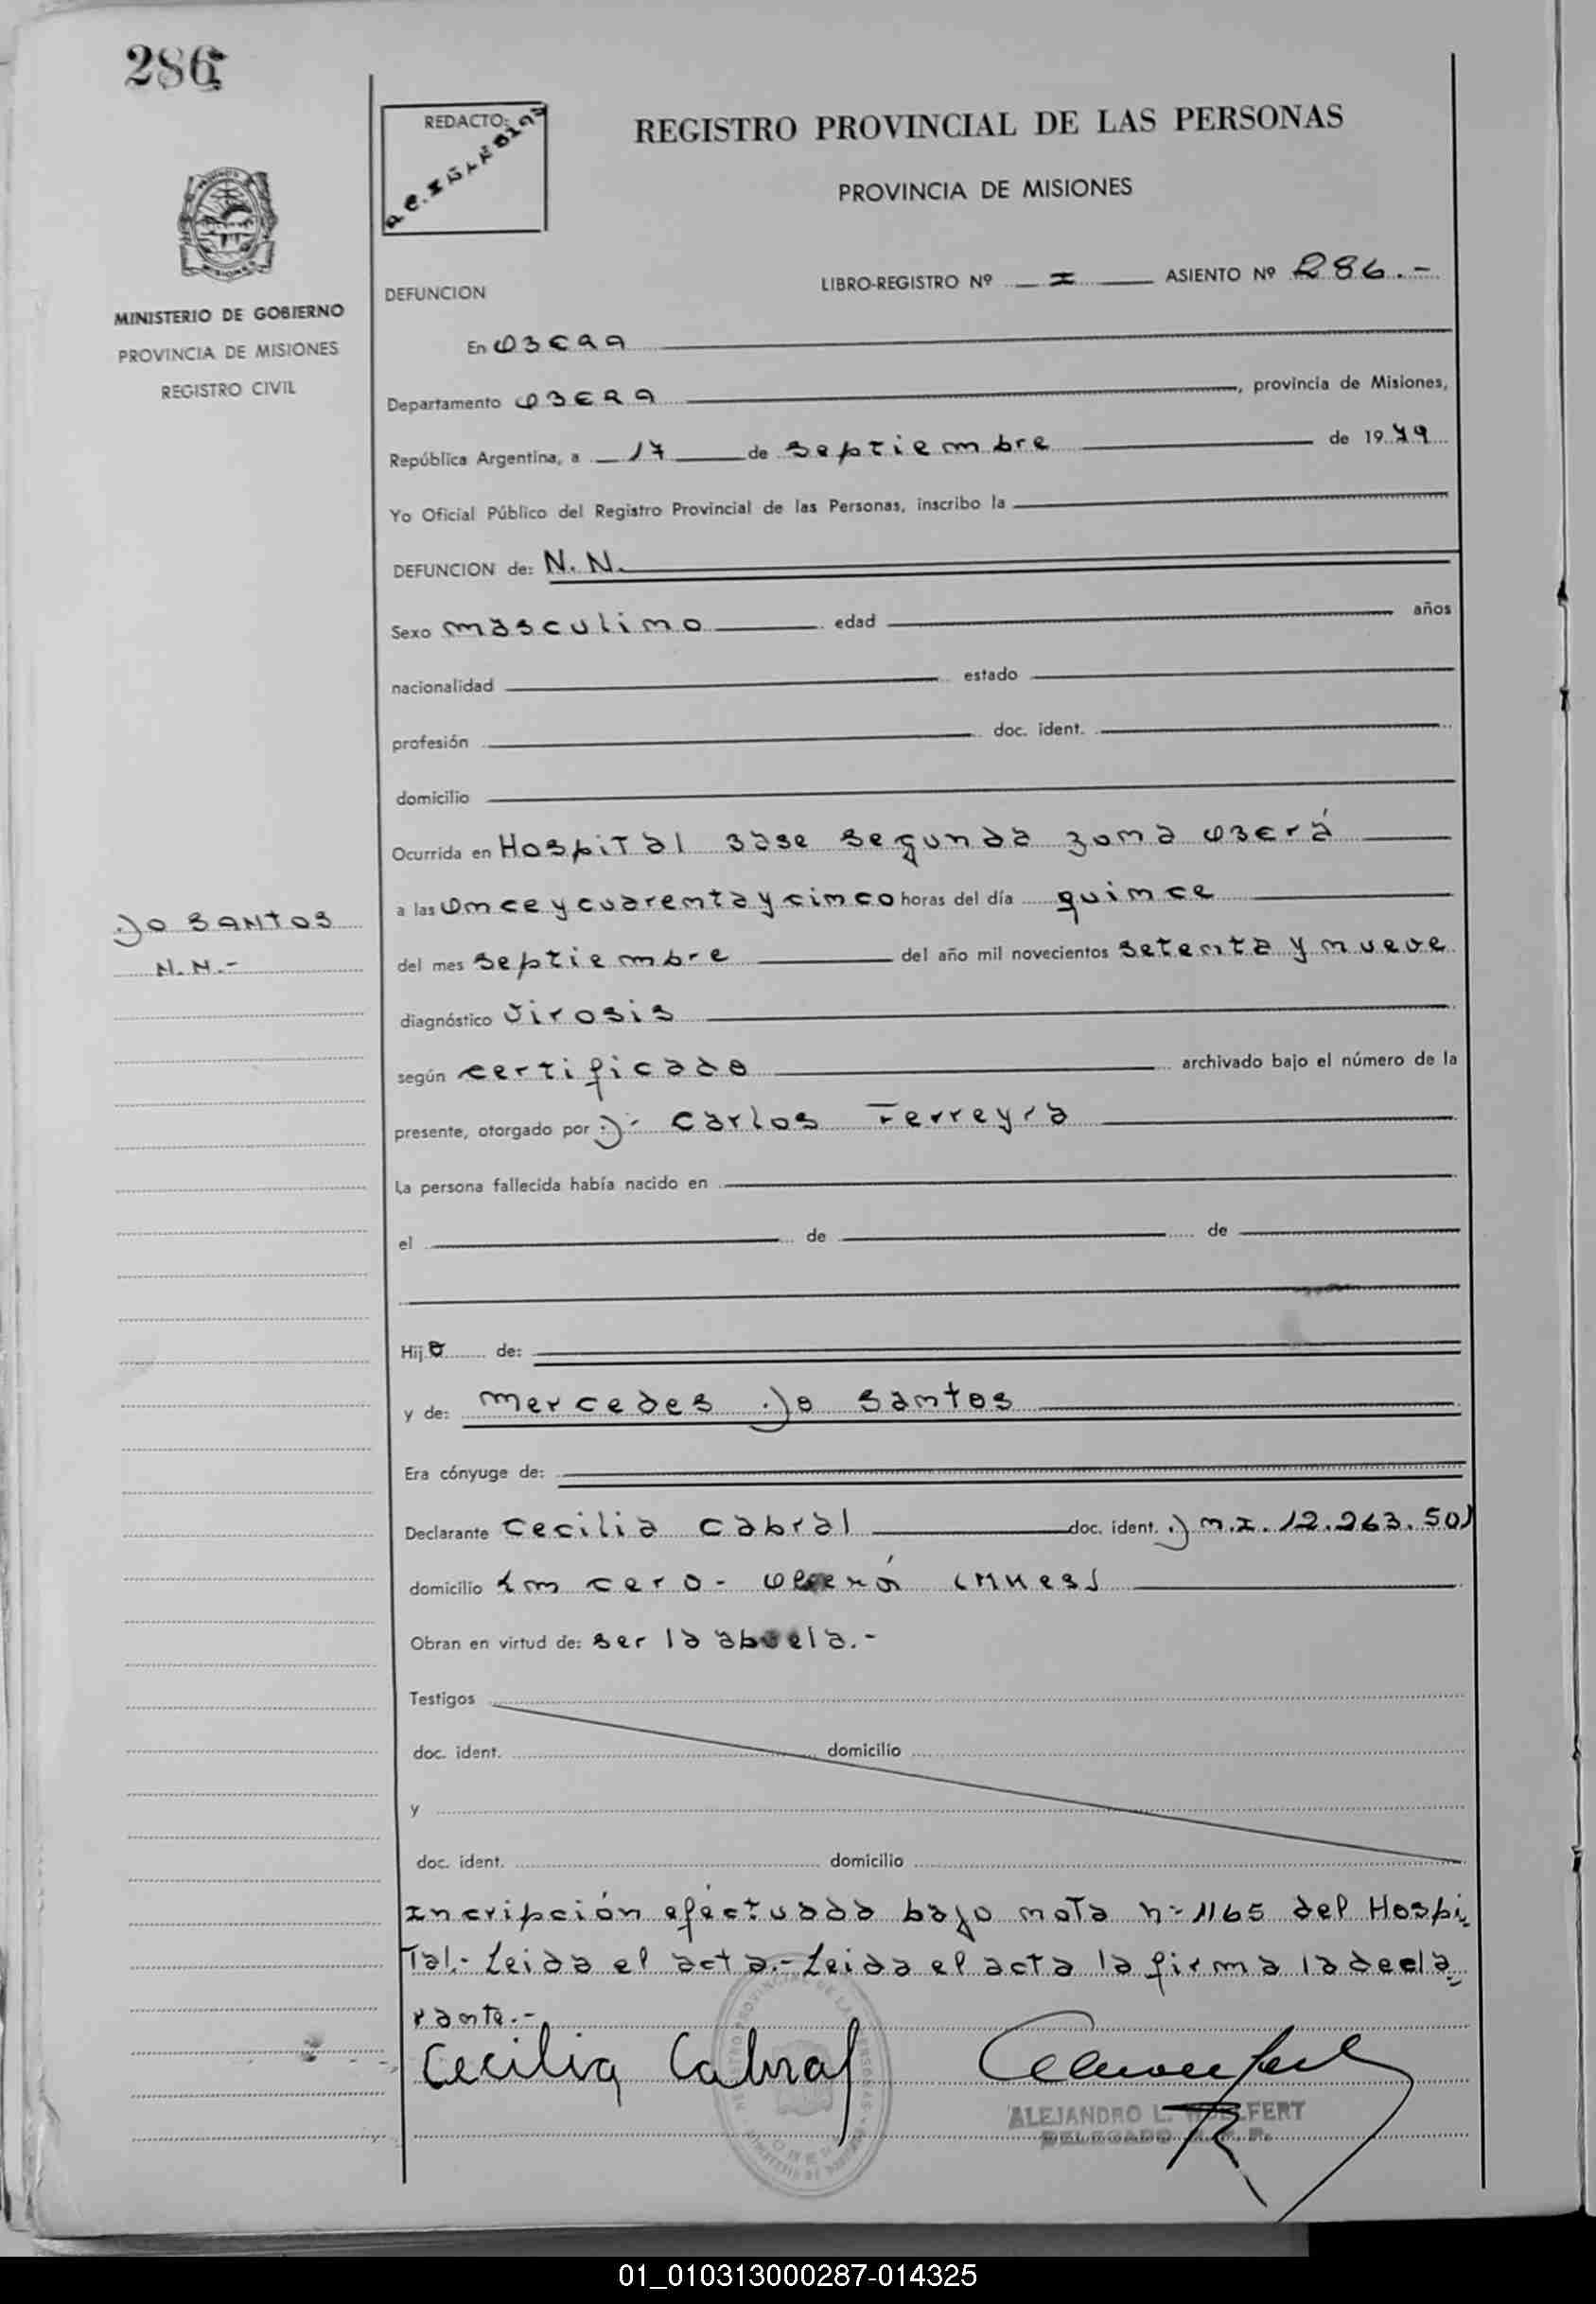 286
REDACTO:
REGISTRO PROVINCIAL DE LAS PERSONAS
PROVINCIA DE MISIONES
MISIONES
MINISTERIO DE GOBIERNO
PROVINCIA DE MISIONES
REGISTRO CIVIL
DEFUNCION
LIBRO-REGISTRO Nº I ASIENTO Nº 286.-
En OBERA
Departamento OBERA, provincia de Misiones,
República Argentina, a 17 de septiembre de 1979
Yo Oficial Público del Registro Provincial de las Personas, inscribo la
DEFUNCION de: N. N.
Sexo masculino edad años
nacionalidad estado
profesión doc. ident.
domicilio
Ocurrida en Hospital Base segunda zona Oberá
a las once y cuarenta y cinco horas del día quince
DO SANTOS
N.N.-
del mes septiembre del año mil novecientos setenta y nueve
diagnóstico Virosis
según certificado archivado bajo el número de la
presente, otorgado por Dr Carlos Ferreyra
La persona fallecida había nacido en
el de de
Hijo de:
y de: Mercedes Do Santos
Era cónyuge de:
Declarante Cecilia Cabral doc. ident. D N.I. 12.263.501
domicilio km cero- Oberá (Mnes)
Obran en virtud de: ser la abuela.-
Testigos
doc. ident. domicilio
y
doc. ident. domicilio
Incripción eféctuada bajo nota n- 1165 del Hospi
Tal.- Leida el acta.- Leida el acta la firma la decla
rante.-
Cecilia Cabral
ALEJANDRO L. WOLFERT
DELEGADO R.P.P.
01_010313000287-014325